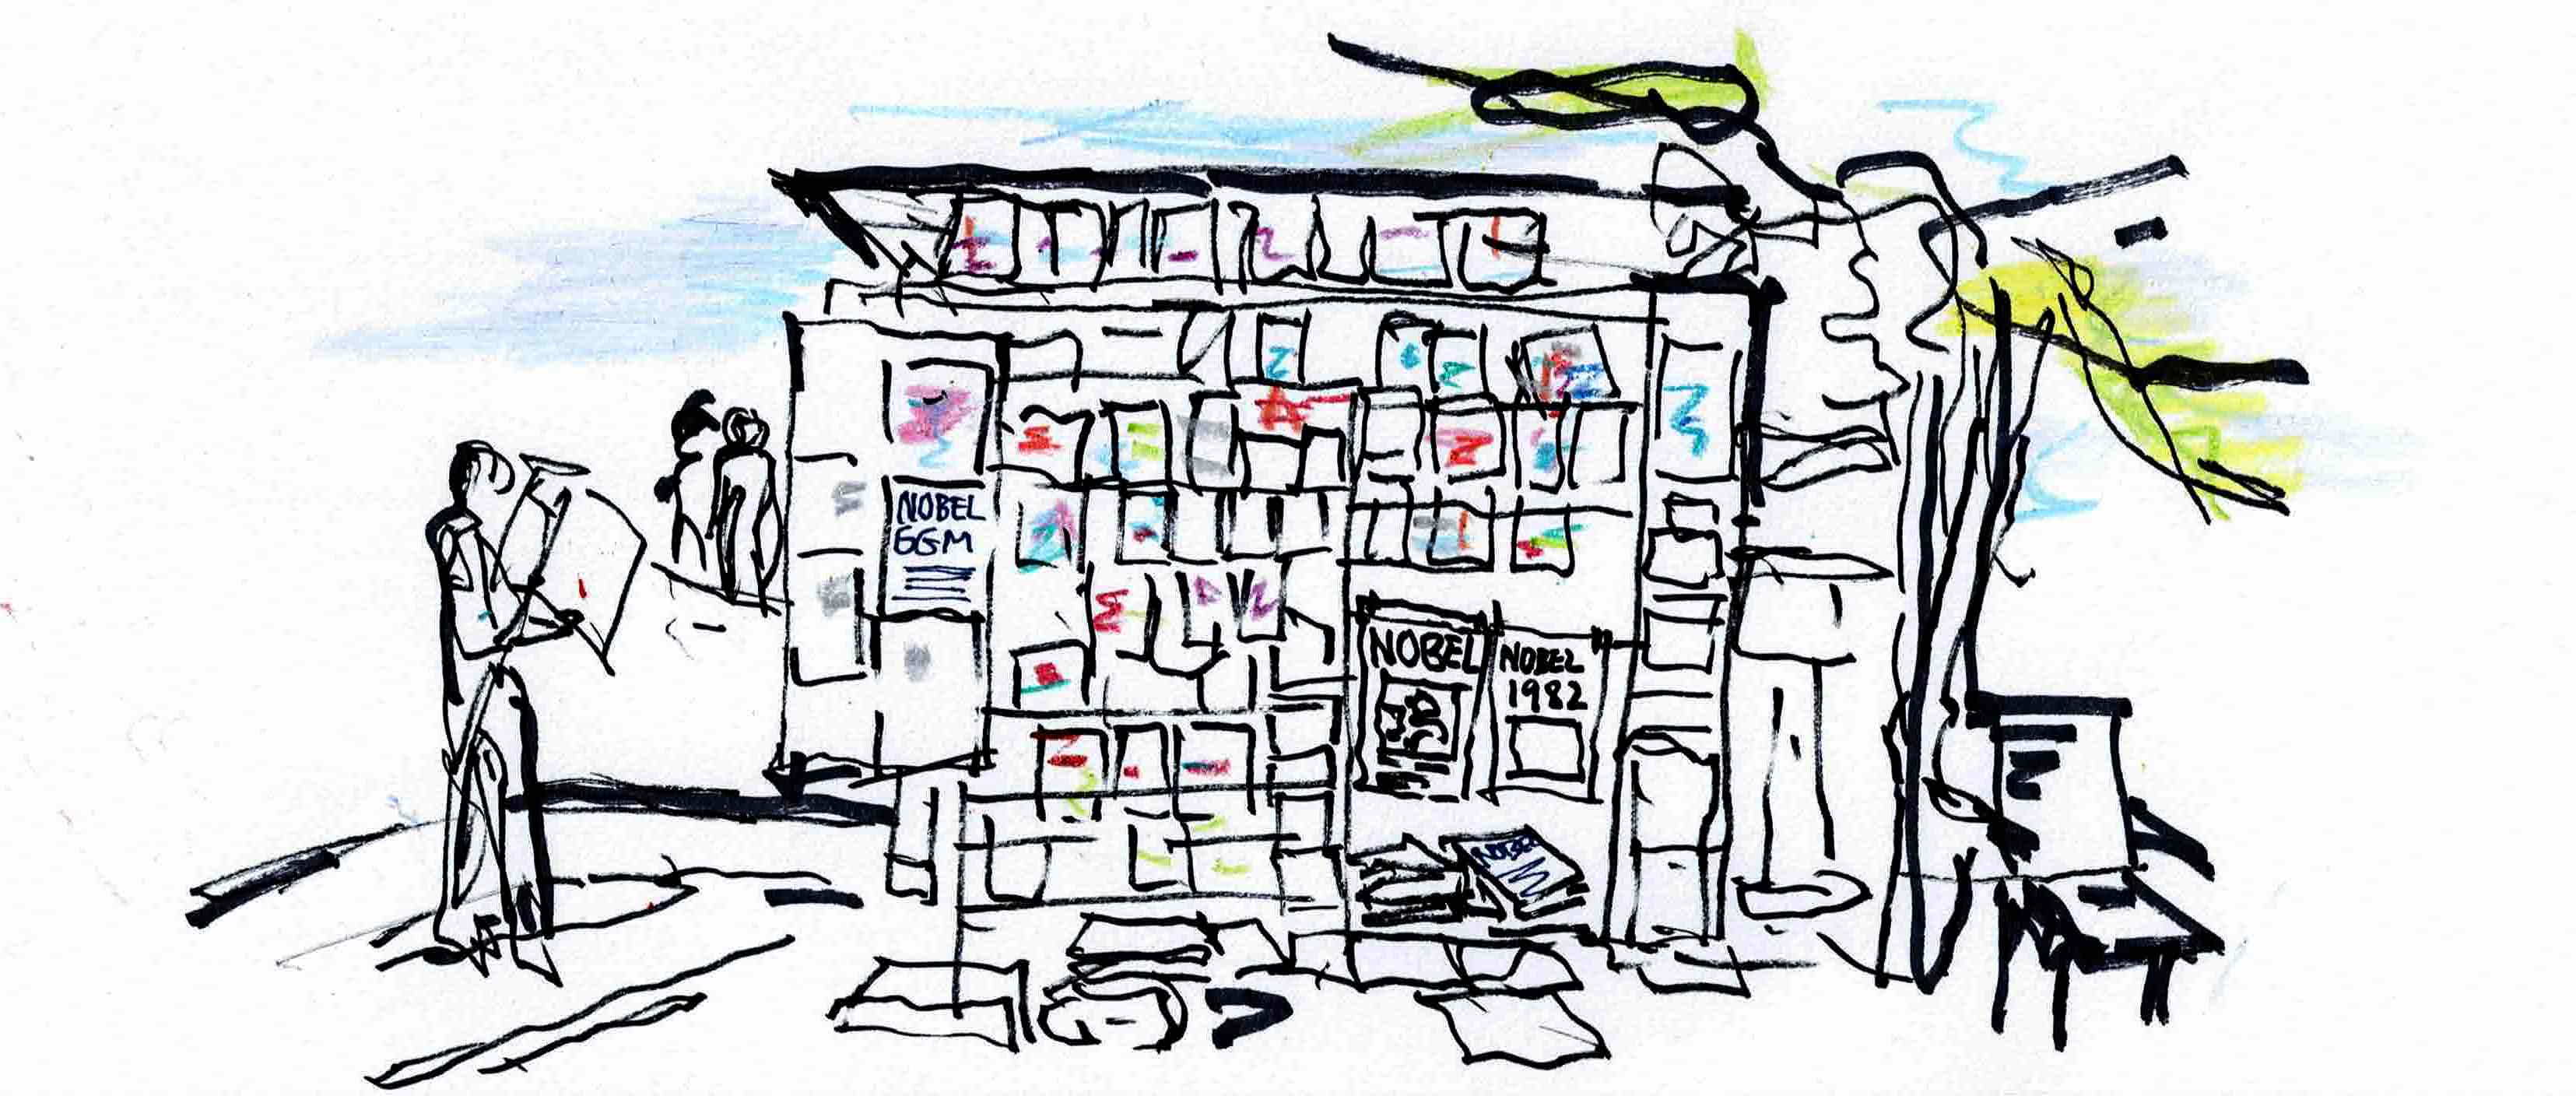 NOBEL
GGM
NOBEL
NOBEL
1982
NOBEL